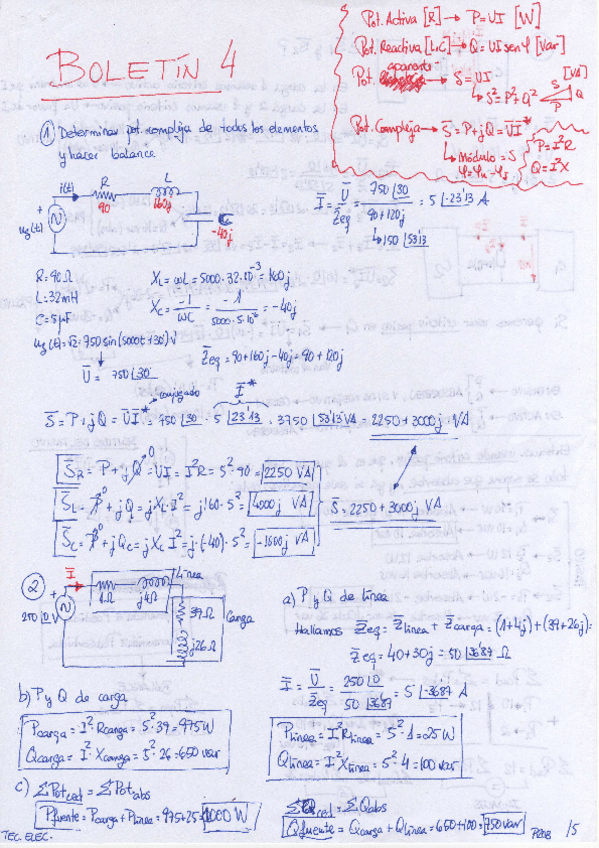 BOLETÍN 4
Pot. Activa [R] → P = UI [W]
Pot. Reactiva [L,C] → Q = UI sen φ [Var]
Pot. aparente → S = UI [VA]
↳ S² = P² + Q²
S
Q
P
Pot. Compleja → S̄ = P + jQ = ŪI*
↳ Módulo = S
φ = φu - φI
P = I²R
Q = I²X
① Determinar pot. compleja de todos los elementos
y hacer balance
i(t) R L
90 160j
ug(t) C -40j
Ī = Ū/Z̄eq = 750∠30 / 90+120j = 5∠-23'13 A
↳ 150∠53'13
R = 90Ω
L = 32mH
C = 5μF
ug(t) = √2·750 sin(5000t+30) V
Ū = 750∠30
XL = ωL = 5000·32·10⁻³ = 160j
Xc = -1/ωC = -1/5000·5·10⁻⁶ = -40j
Z̄eq = 90+160j-40j = 90+120j
conjugado
Ī*
S̄ = P+jQ = ŪI* = 750∠30 · 5∠23'13 = 3750∠53'13 VA = 2250+3000j VA
S̄R = P + jQ⁰ = UI = I²R = 5²·90 = 2250 VA
S̄L = P⁰ + jQ = jXL·I² = j160·5² = 4000j VA
S̄c = P⁰ + jQc = jXc I² = j·(-40)·5² = -1000j VA
S̄ = 2250+3000j VA
② Ī Línea
1Ω j4Ω
250∠0 V
39Ω
j26Ω
Carga
a) P y Q de línea
Hallamos Z̄eq = Z̄línea + Z̄carga = (1+4j) + (39+26j) =
Z̄eq = 40+30j = 50∠36'87 Ω
Ī = Ū/Z̄eq = 250∠0 / 50∠36'87 = 5∠-36'87 A
Plínea = I²Rlínea = 5²·1 = 25 W
Qlínea = I²Xlínea = 5²·4 = 100 var
b) P y Q de carga
Pcarga = I²·Rcarga = 5²·39 = 975 W
Qcarga = I²·Xcarga = 5²·26 = 650 var
c) ΣPotced = ΣPotabs
Pfuente = Pcarga + Plínea = 975+25 = 1000 W
ced = ΣQabs
Qfuente = Qcarga + Qlínea = 650+100 = 750 var
TEC. ELEC.
/5